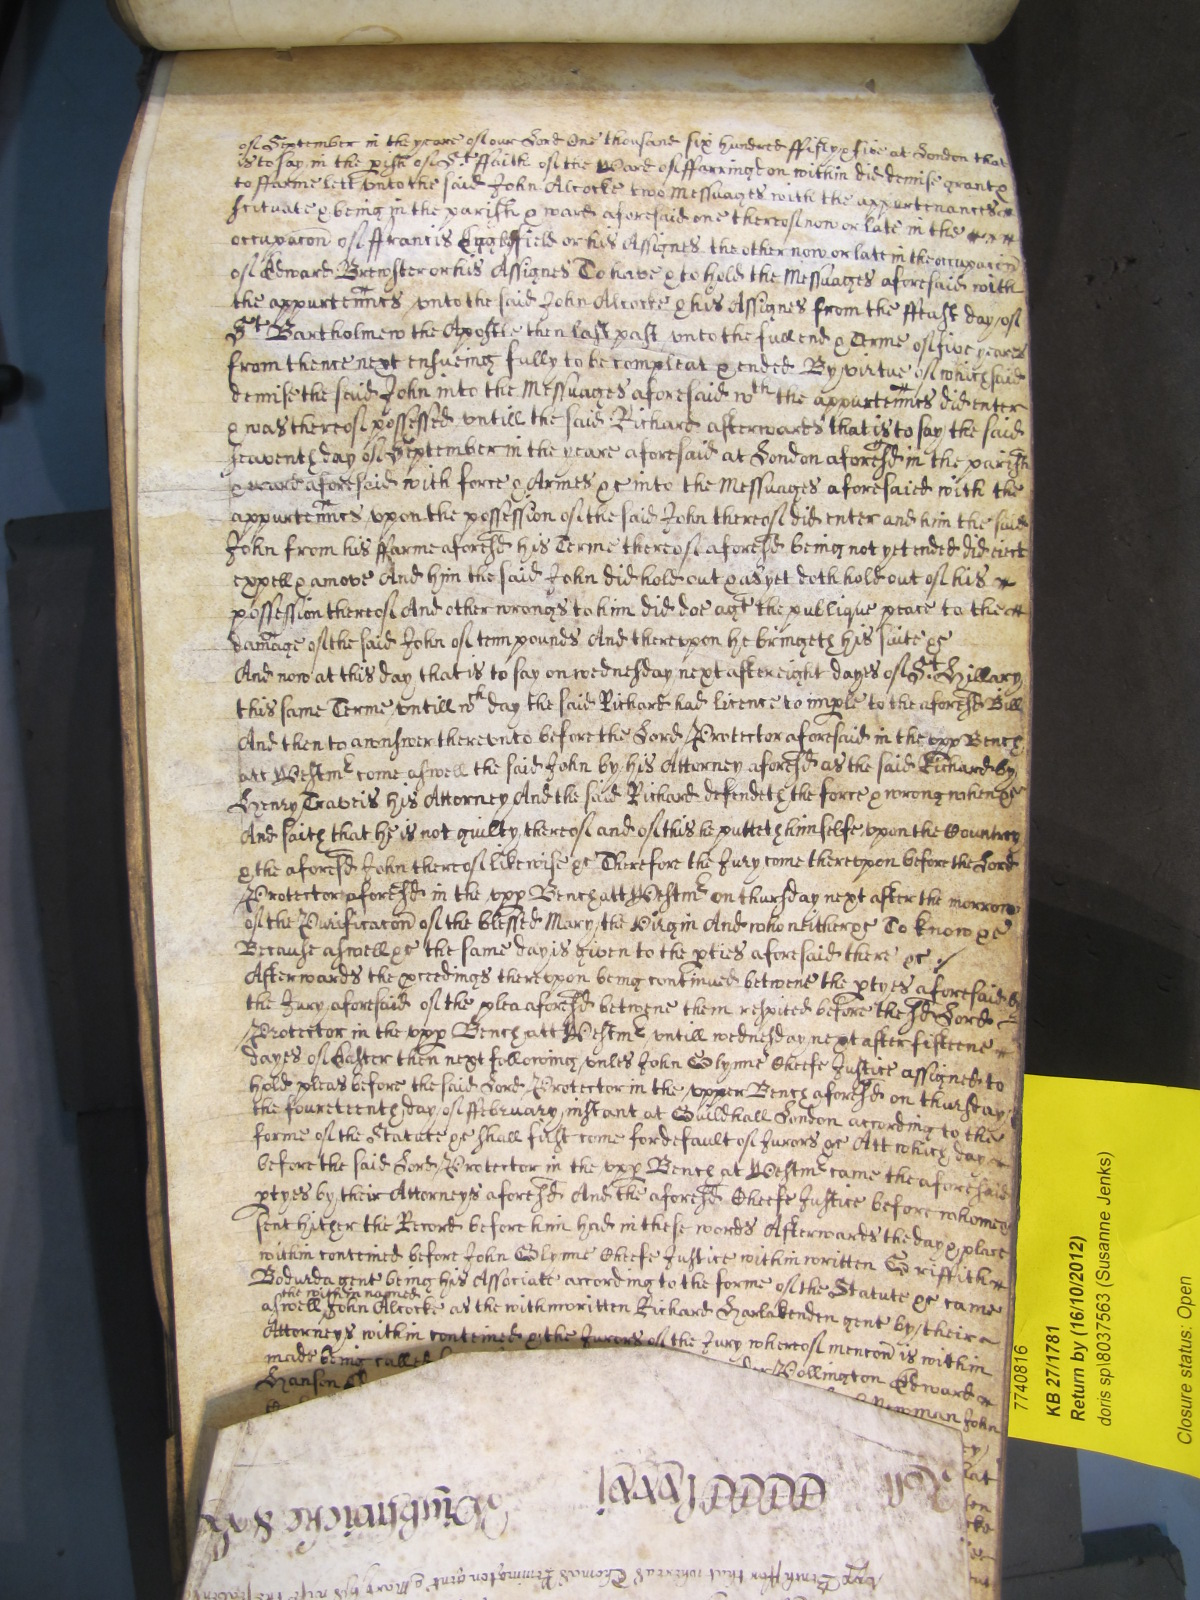 of September in the yeare of our Lord One thousand six hundred ffifty & five at London that
is to say in the pish of St ffaith of the Ward of ffarringdon within did demise grant &
to ffarme lett unto the said John Alcocke two Messuages with the appurtenances
scituate & being in the parish & ward aforesaid one thereof now or late in the
occupacon of ffrancis Egglesfield or his Assignes the other now or late in the occupacon
of Edward Brewster or his Assignes To have & to hold the Messuages aforesaid with
the appurtennces unto the said John Alcocke & his Assignes from the ffeast day of
St Bartholmew the Apostle then last past unto the full end & Terme of five yeares
from thence next ensueing fully to be compleat & ended By virtue of which said
demise the said John into the Messuages aforesaid wth the appurtennces did enter
& was thereof possessed untill the said Richard afterwards that is to say the said
seaventh day of September in the yeare aforesaid at London aforesd in the parish
& ward aforesaid with force & Armes &c into the Messuages aforesaied with the
appurtennces upon the possession of the said John thereof did enter and him the said
John from his ffarme aforesd his Terme thereof aforesd being not yet ended did eiect
expell & amove And him the said John did hold out & as yet doth hold out of his
possession thereof And other wrongs to him did doe agt the publique peace to the
damage of the said John of tenn pounds And thereupon he bringeth his suite &c
And now at this day that is to say on wednesday next after eight dayes of St Hillary
this same Terme untill wch day the said Richard had licence to imple to the aforesd Bill
And then to answer thereunto before the Lord Protector aforesaid in the upp Bench
att Westmr come aswell the said John by his Attorney aforesd as the said Richard by
Henry Traveis his Attorney And the said Richard defendeth the force & wrong when &c
And saith that he is not guilty thereof and of this he putteth himselfe upon the Countrey
& the aforesd John thereof likewise &c Therefore the Jury come thereupon before the Lord
Protector aforesd in the upp Bench att Westmr on thursday next after the morrow
of the Purificacon of the blessed Mary the Virgin And who neither &c To know &c
Because aswell &c the same day is given to the pties aforesaid there &c
Afterwards the pceedings thereupon being continued betwene the ptyes aforesaid by
the Jury aforesaid of the plea aforesd betwene them respited before the sd Lord
Protector in the upp Bench att Westmr untill wednesday next after fifteene
dayes of Easter then next following unles John Glynne Cheefe Justice assigned to
hold pleas before the said Lord Protector in the upper Bench aforesd on thursday
the foureteenth day of ffebruary instant at Guildhall London according to the
forme of the Statute &c shall first come for default of Jurors &c Att which day
before the said Lord Protector in the upp Bench at Westmr came the aforesaid
ptyes by their Attorneys aforesd And the aforesd Cheefe Justice before whome
sent hither the Record before him had in these words Afterwards the day & place
within conteined before John Glynne Cheefe Justice within written Griffith
Bodurda gent being his Associate according to the forme of the Statute &c came
the within named
aswell John Alcocke as the within written Richard Harlakenden gent by their
Attorneys within conteined & the Jurors of the Jury whereof mencon is within
made being called Pollington Edward
Hansen
Newman John
7740816
KB 27/1781
Return by (16/10/2012)
doris sp\8037563 (Susanne Jenks)
Closure status: Open